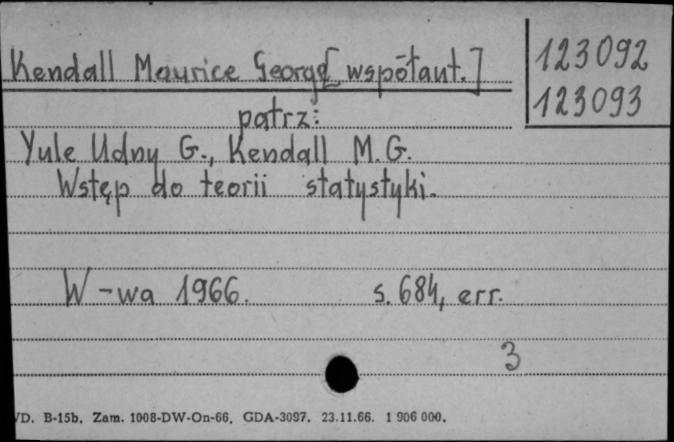 Kendall Maurice George [współaut.]
123092
123093
patrz:
Yule Udny G., Kendall M.G.
Wstęp do teorii statystyki.
W-wa 1966. s. 684, err.
3
VD. B-15b. Zam. 1008-DW-On-66. GDA-3097. 23.11.66. 1 906 000.